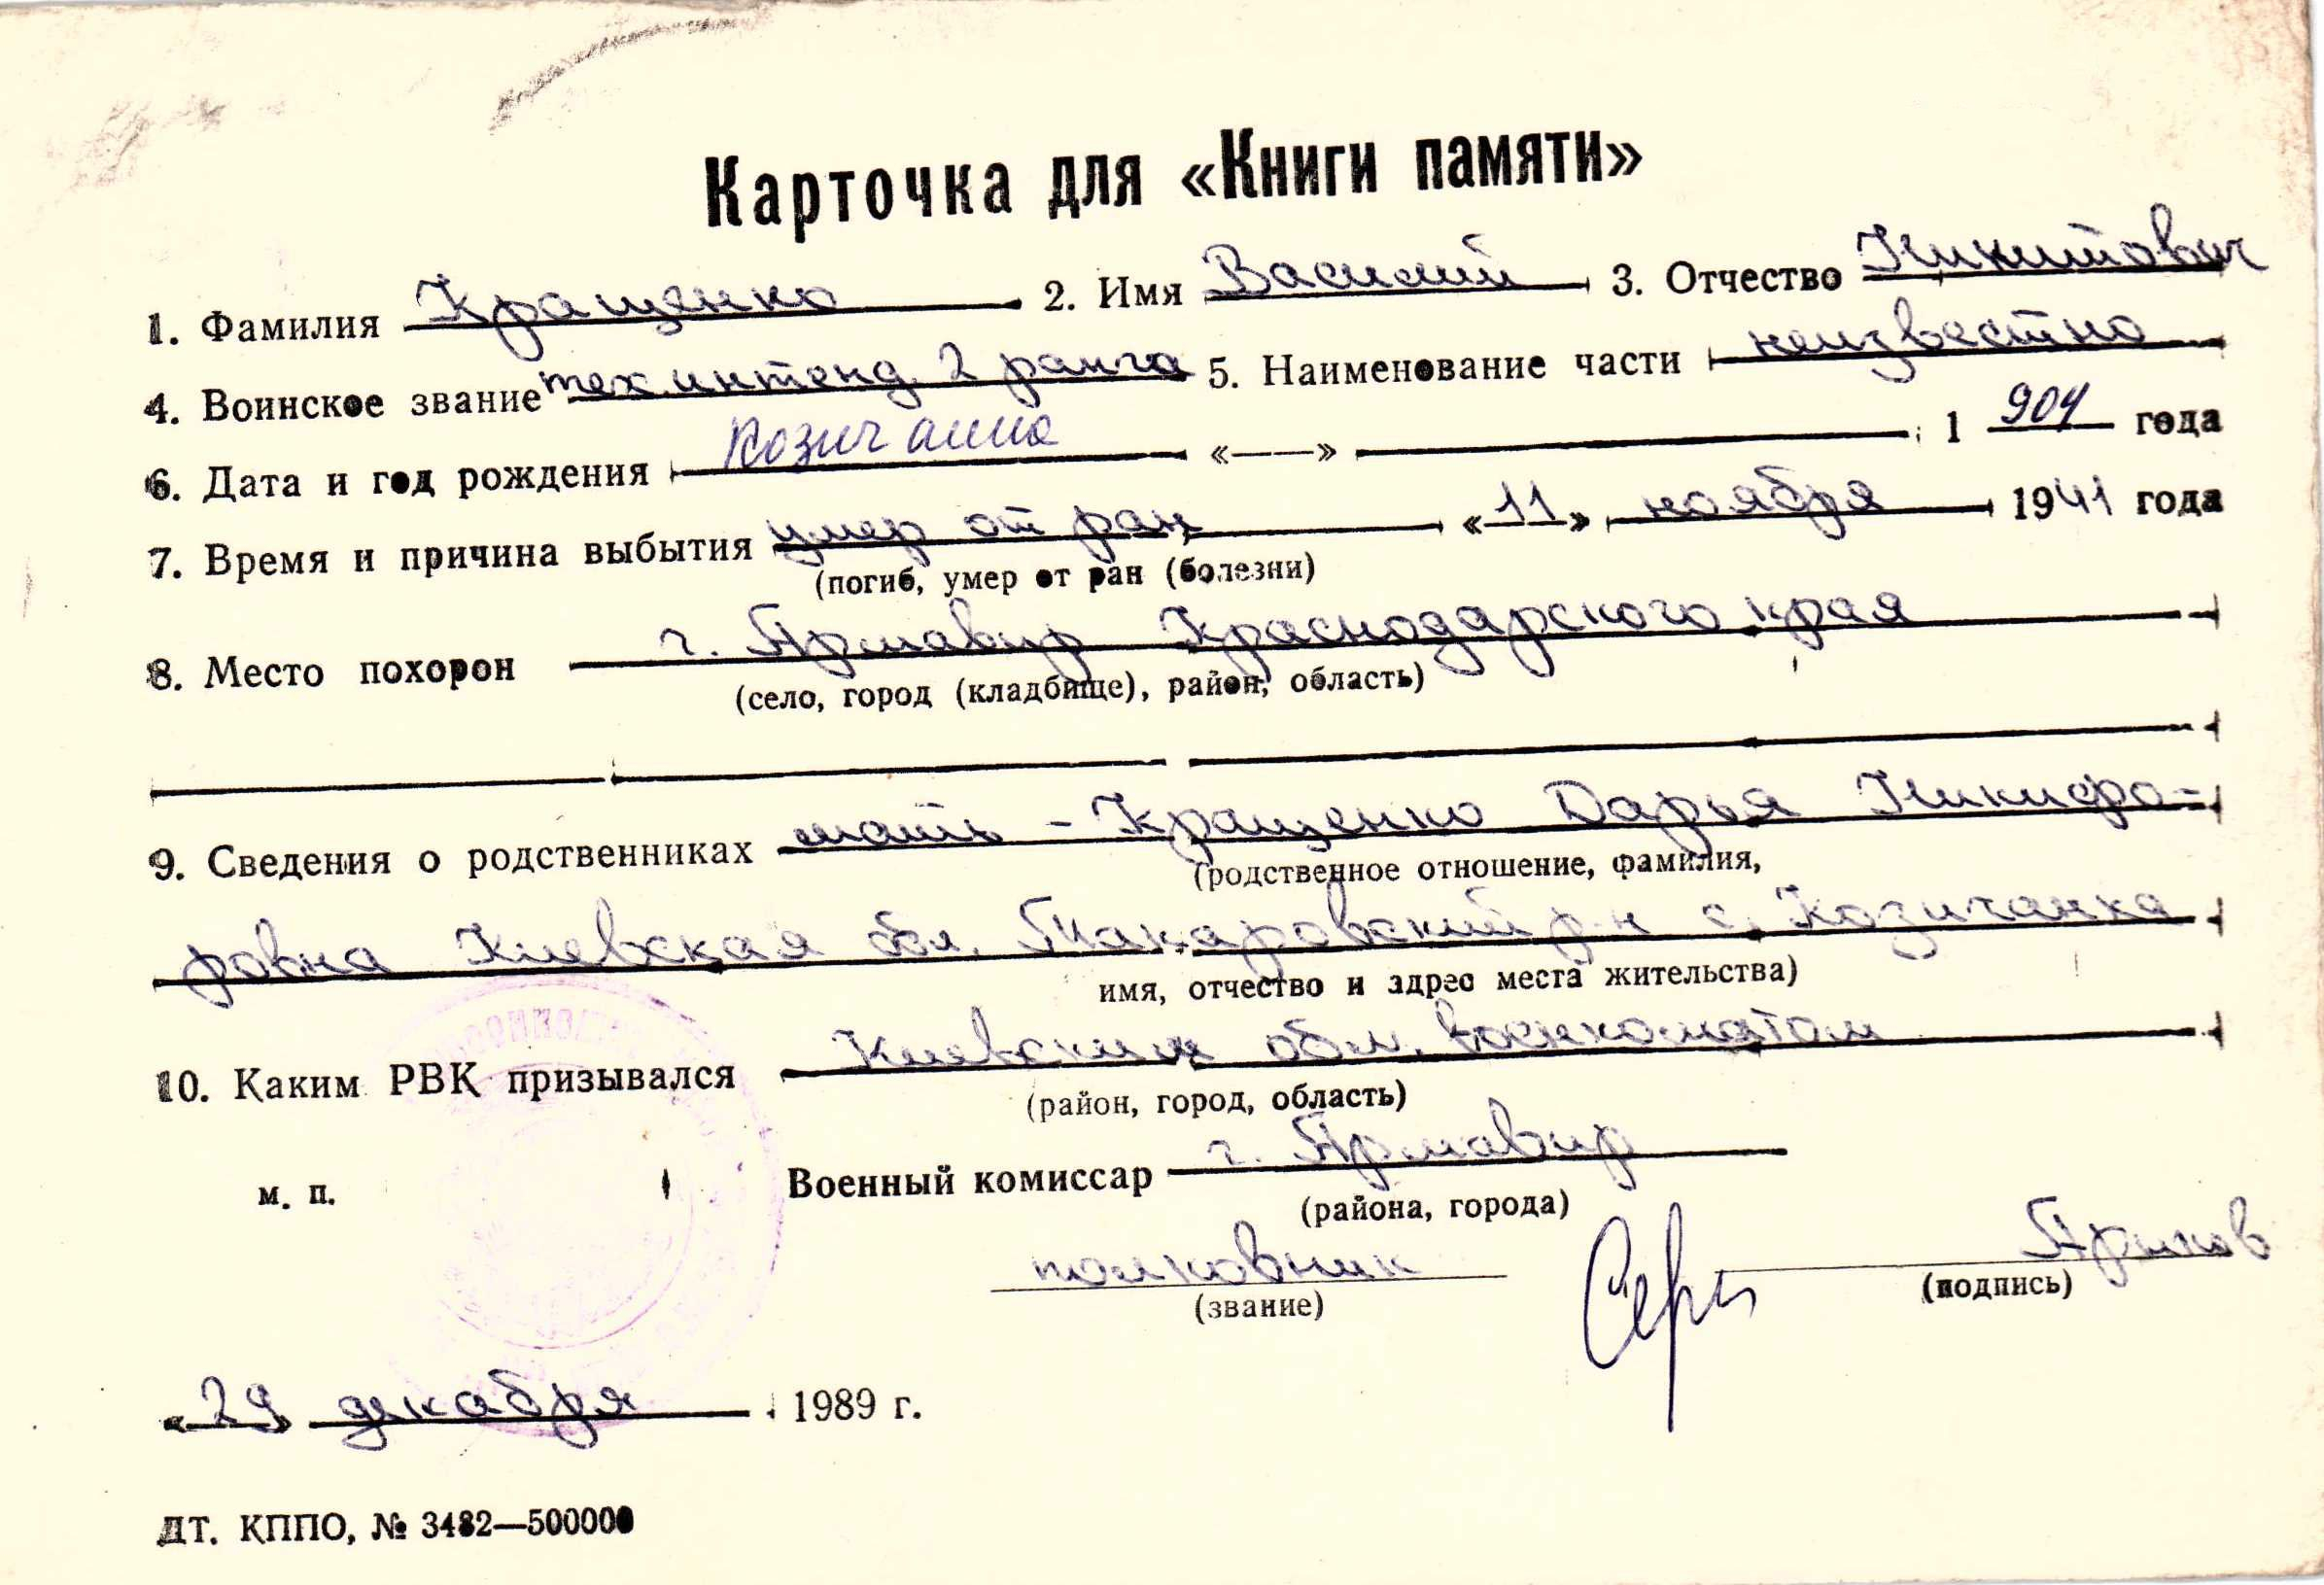 Карточка для «Книги памяти»
1. Фамилия Кращенко 2. Имя Василий 3. Отчество Никитович
4. Воинское звание тех. интенд. 2 ранга 5. Наименование части неизвестно
6. Дата и год рождения «——» 1 904 года
7. Время и причина выбытия умер от ран «11» ноября 1941 года
(погиб, умер от ран (болезни)
8. Место похорон г. Армавир Краснодарского края
(село, город (кладбище), район, область)
9. Сведения о родственниках мать - Кращенко Дарья Никифо-
(родственное отношение, фамилия,
ровна Киевская обл. Макаровский р-н с. Козичанка
имя, отчество и адрес места жительства)
10. Каким РВК призывался Киевским обл. военкоматом
(район, город, область)
м. п. Военный комиссар г. Армавир
(района, города)
полковник
(звание) (подпись)
«29» декабря 1989 г.
ДТ. КППО, № 3482—500000